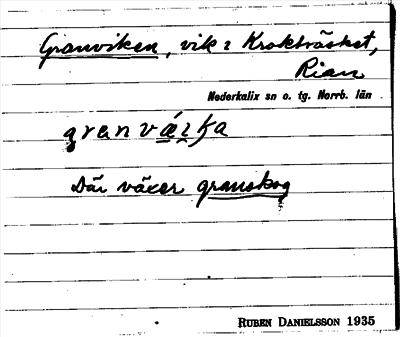 Granviken, vik i Krokträsket,
Rian
Nederkalix sn o. tg. Norrb. län
Där växer granskog
RUBEN DANIELSSON 1935